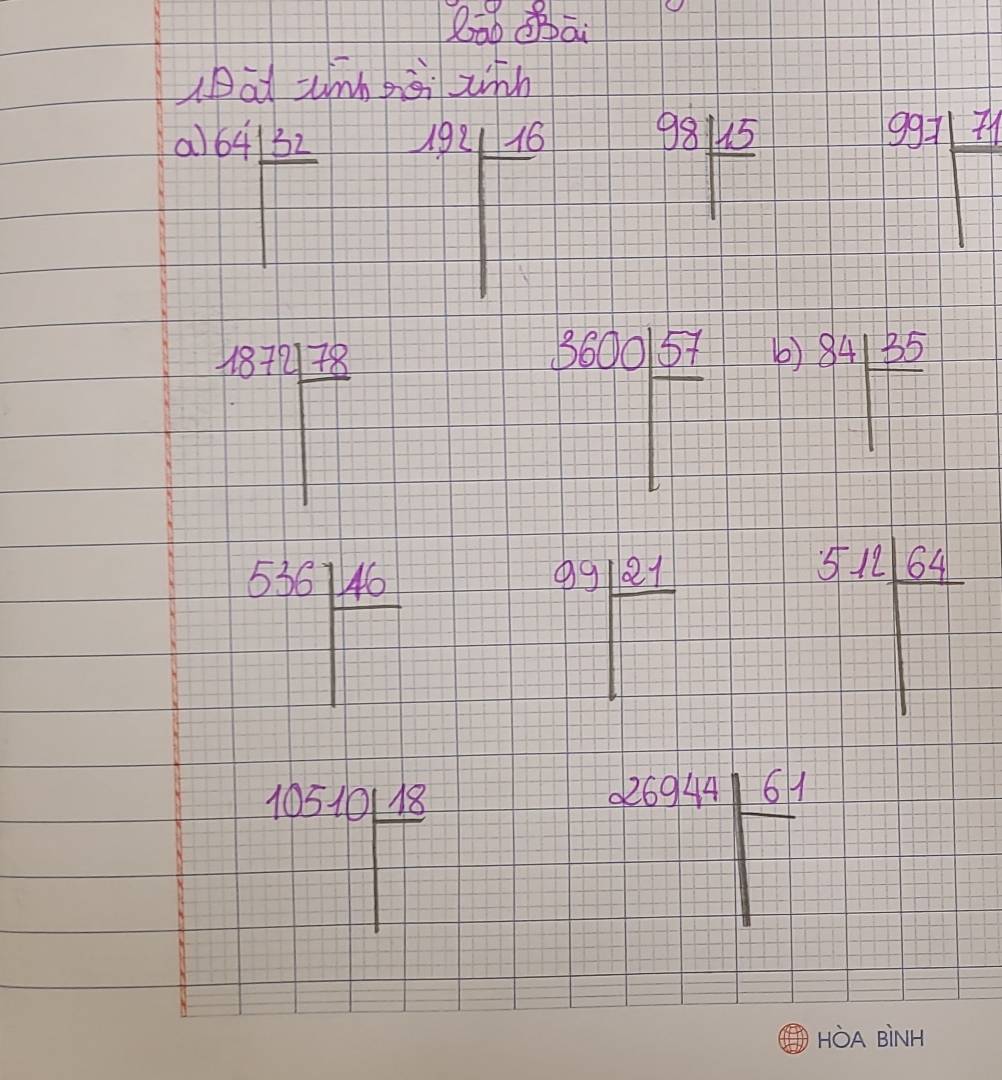 Bài
1 Đặt tính rồi tính
a) 64 32 192 16 98 15 997 71
1872 78 3600 57 b) 84 35
536 46 99 21 512 64
10510 18 26944 61
HÒA BÌNH